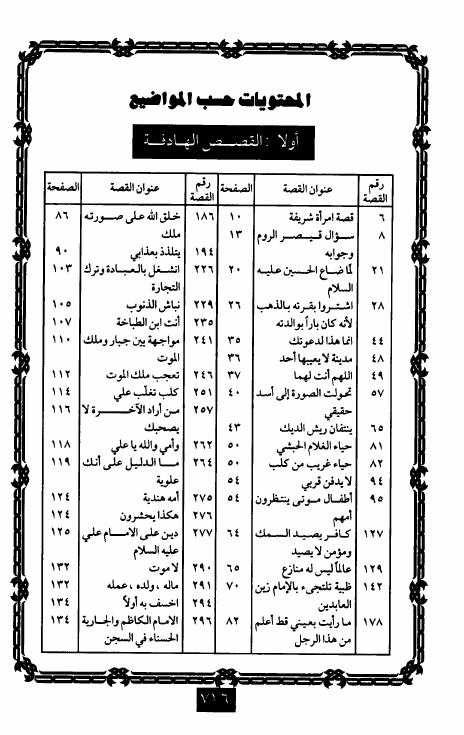 المحتويات حسب المواضيع
أولا : القصص الهادفة
رقم القصة عنوان القصة الصفحة
٦ قصة امرأة شريفة ١٠
٨ سؤال قيصر الروم ١٣
وجوابه
٢١ لماضاع الحسين عليه ٢٠
السلام
٢٨ اشتروا بقرته بالذهب ٢٦
لأنه كان باراً بوالدته
٤٤ انما هذا لدعوتك ٣٥
٤٨ مدينة لا يعيبها أحد ٣٦
٤٩ اللهم أنت لهما ٣٧
٥٧ تحولت الصورة إلى أسد ٤٠
حقيقي
٦٥ ينتفان ريش الديك ٤٣
٨١ حياء الغلام الحبشي ٥٠
٨٢ حياء غريب من كلب ٥٠
٩٤ لا يدفن قربي ٥٤
٩٥ أطفال موتى ينتظرون ٥٤
أمهم
١٢٧ كافر يصيد السمك ٦٤
ومؤمن لا يصيد
١٢٩ عالماً ليس له منازع ٦٥
١٤٢ ظبية تلتجىء بالإمام زين ٧٠
العابدين
١٧٨ ما رأيت بعيني قط أعلم ٨٢
من هذا الرجل
رقم القصة عنوان القصة الصفحة
١٨٦ خلق الله على صورته ٨٦
ملك
١٩٤ يتلذذ بعذابي ٩٠
٢٢٦ انشغل بالعبادة وترك ١٠٣
التجارة
٢٢٩ نباش الذنوب ١٠٥
٢٣٥ أنت ابن الطباخة ١٠٧
٢٤١ مواجهة بين جبار وملك ١١٠
الموت
٢٤٦ تعجب ملك الموت ١١٢
٢٥١ كلب تغلّب علي ١١٤
٢٥٧ من أراد الآخرة لا ١١٦
يصحبك
٢٦٢ وأمي والله يا علي ١١٨
٢٦٤ ما الدليل على أنك ١١٩
علوية
٢٧٥ أمه هندية ١٢٤
٢٧٦ هكذا يحشرون ١٢٤
٢٧٧ دين على الامام علي ١٢٥
عليه السلام
٢٩٠ لا موت ١٣٢
٢٩١ ماله ، ولده ، عمله ١٣٢
٢٩٤ اخسف به أولاً ١٣٤
٢٩٦ الامام الكاظم والجارية ١٣٤
الحسناء في السجن
٧١٦